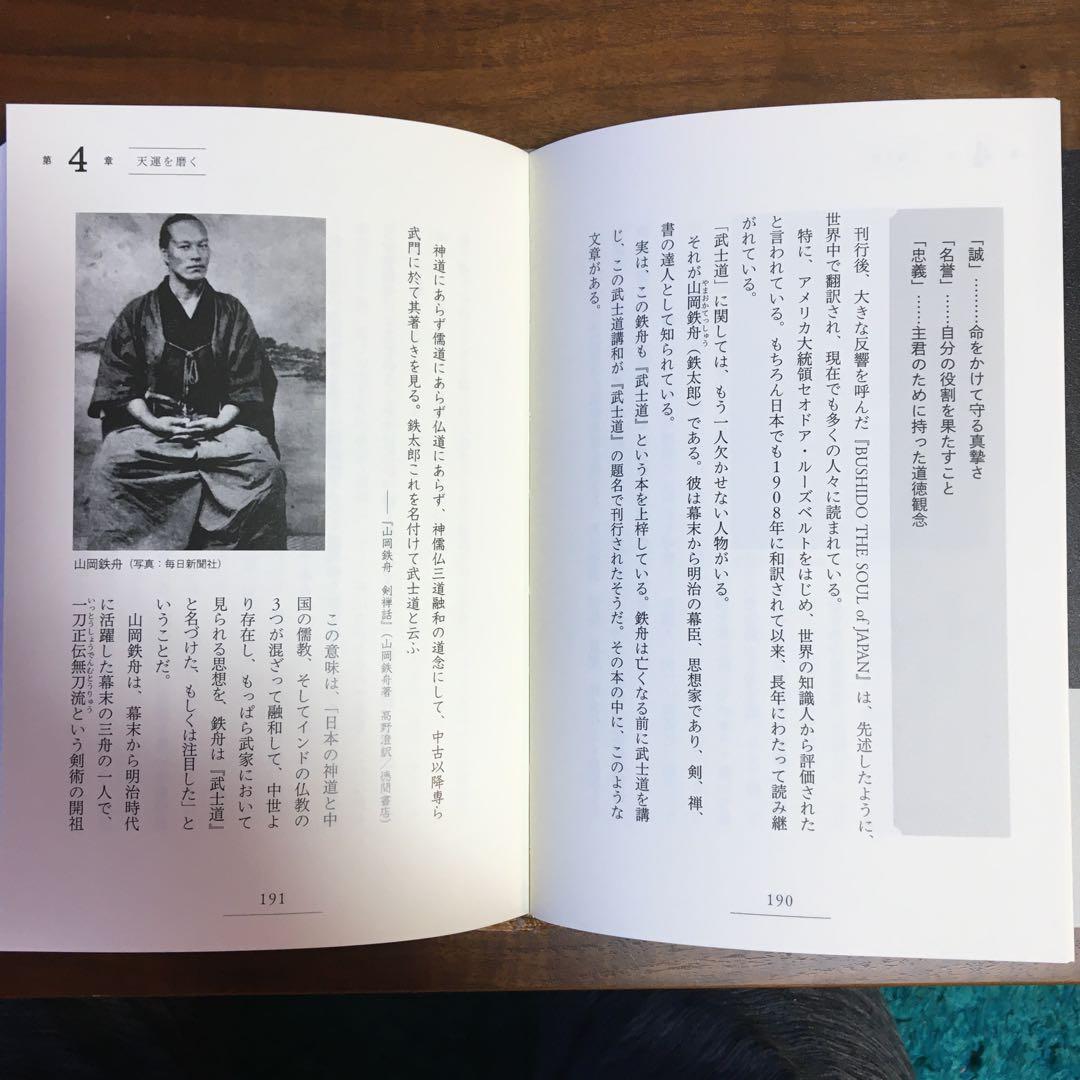 「誠」…………命をかけて守る真摯さ
「名誉」………自分の役割を果たすこと
「忠義」………主君のために持った道徳観念
刊行後、大きな反響を呼んだ『BUSHIDO THE SOUL of JAPAN』は、先述したように、
世界中で翻訳され、現在でも多くの人々に読まれている。
特に、アメリカ大統領セオドア・ルーズベルトをはじめ、世界の知識人から評価された
と言われている。もちろん日本でも1908年に和訳されて以来、長年にわたって読み継
がれている。
「武士道」に関しては、もう一人欠かせない人物がいる。
それが山岡鉄舟（鉄太郎）である。彼は幕末から明治の幕臣、思想家であり、剣、禅、
やまおかてっしゅう
書の達人として知られている。
実は、この鉄舟も『武士道』という本を上梓している。鉄舟は亡くなる前に武士道を講
じ、この武士道講和が『武士道』の題名で刊行されたそうだ。その本の中に、このような
文章がある。
190
第4章 天運を磨く
神道にあらず儒道にあらず仏道にあらず、神儒仏三道融和の道念にして、中古以降専ら
武門に於て其著しきを見る。鉄太郎これを名付けて武士道と云ふ
――『山岡鉄舟 剣禅話』（山岡鉄舟著 高野澄訳／徳間書店）
山岡鉄舟（写真：毎日新聞社）
この意味は、「日本の神道と中
国の儒教、そしてインドの仏教の
3つが混ざって融和して、中世よ
り存在し、もっぱら武家において
見られる思想を、鉄舟は『武士道』
と名づけた、もしくは注目した」と
いうことだ。
山岡鉄舟は、幕末から明治時代
に活躍した幕末の三舟の一人で、
一刀正伝無刀流という剣術の開祖
いっとうしょうでんむとうりゅう
191